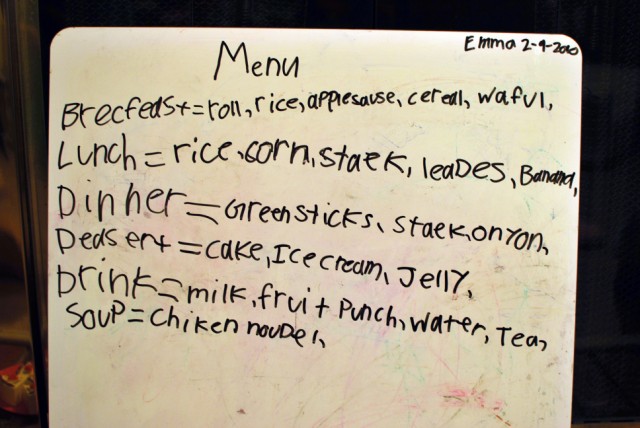 Emma 2-9-2010
Menu
Brecfest=roll, rice, applesause, cereal, waful,
Lunch=rice, corn, staek, leaDes, Banana,
Dinner=Greensticks, staek, onyon,
Dedsert=cake, Ice cream, Jelly,
Drink=milk, fruit Punch, water, Tea,
Soup=chiken noudel,